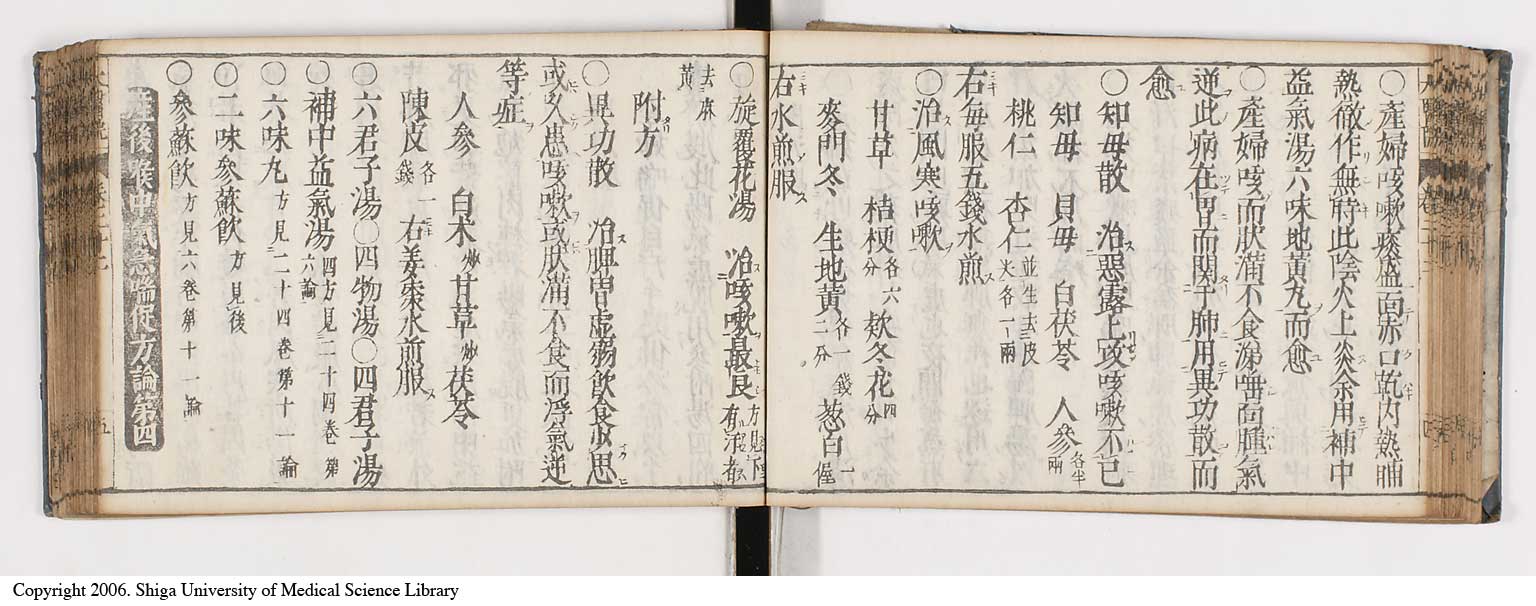 ○産婦咳嗽痰盛面赤口乾内熱晡
熱徹作無時此陰火上炎余用補中
益氣湯六味地黄丸而愈
○産婦咳而脹滿不食涕唾面腫氣
逆此病在胃而関于肺用異功散而
愈
○知母散　治惡露上攻咳嗽不已
知母　貝母　白茯苓　人參各半兩
桃仁　杏仁並生去皮尖各一兩
右毎服五錢水煎
○治風寒咳嗽
甘草　桔梗各六分　欵冬花四分
麥門冬　生地黄各一錢二分　葱白一握
右水煎服
○旋覆花湯　治咳嗽最良方見下有
去麻黄
附方
○異功散　治脾胃虚弱飲食少思
或久患咳嗽或脹滿不食而浮氣逆
等症
人參　白术炒　甘草炒　茯苓
陳皮各一錢　右姜棗水煎服
○六君子湯○四物湯○四君子湯
補中益氣湯四方見二十四卷第六論
○六味丸方見二十四卷第十一論
○二味參蘇飲方見後
○參蘇飲方見六卷第十一論
産後喉中氣急喘促方論第四
Copyright 2006. Shiga University of Medical Science Library